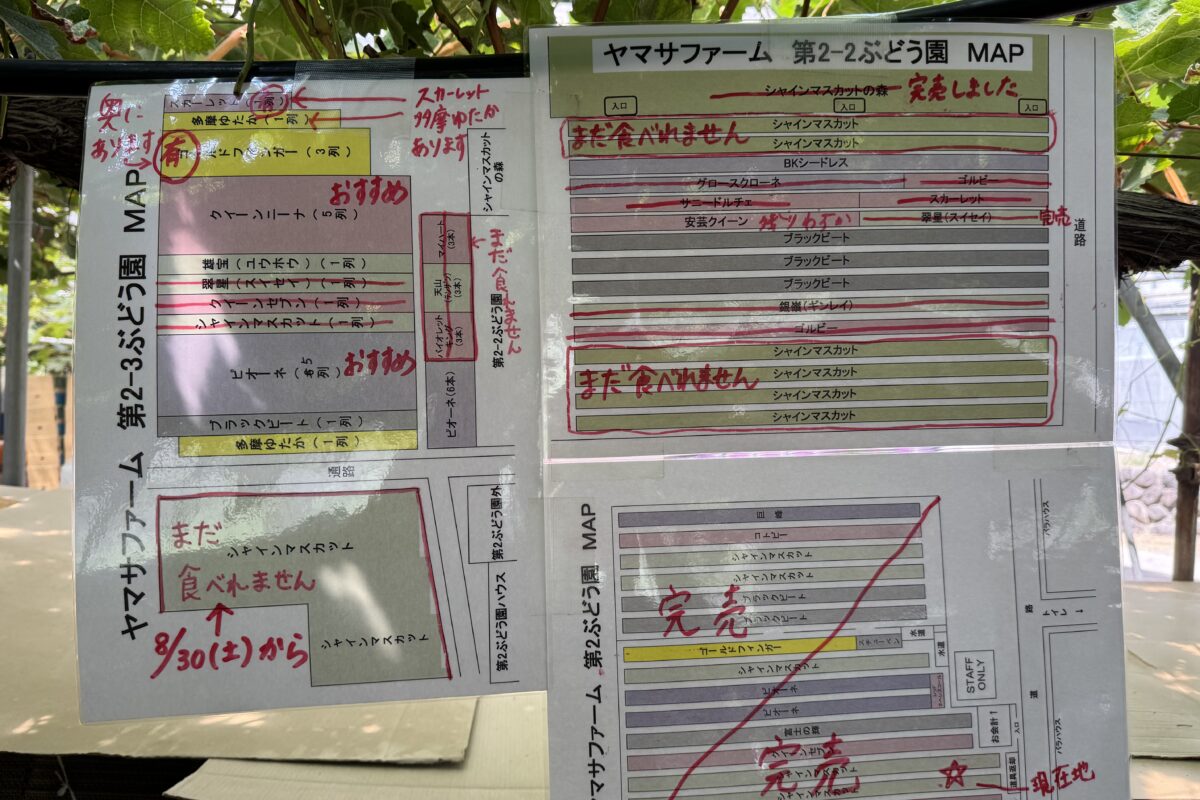 ヤマサファーム 第2-3ぶどう園 MAP
奥に
あります
スカーレット
多摩ゆたか
あります
スカーレット(1列)
多摩ゆたか(1列)
有
ゴールドフィンガー(3列)
おすすめ
クイーンニーナ(5列)
雄宝(ユウホウ)(1列)
翠星(スイセイ)(1列)
クイーンセブン(1列)
シャインマスカット(1列)
ピオーネ(5列)
おすすめ
ブラックビート(1列)
多摩ゆたか(1列)
シャインマスカット
の森
マイハート
(3本)
天山
(3本)
バイオレット
キング
(3本)
ピオーネ(6本)
まだ食べれません
第2-2ぶどう園
通路
まだ
シャインマスカット
食べれません
8/30(土)から
シャインマスカット
第2ぶどう園外
第2ぶどう園ハウス
ヤマサファーム 第2-2ぶどう園 MAP
シャインマスカットの森 完売しました
入口
入口
入口
シャインマスカット
まだ食べれません
シャインマスカット
BKシードレス
グロースクローネ ゴルビー
サニードルチェ スカーレット
安芸クイーン 残りわずか 翠星(スイセイ) 完売
ブラックビート
ブラックビート
ブラックビート
銀嶺(ギンレイ)
ゴルビー
シャインマスカット
シャインマスカット
まだ食べれません
シャインマスカット
シャインマスカット
道路
ヤマサファーム 第2ぶどう園 MAP
巨峰
コトピー
シャインマスカット
シャインマスカット
ブラックビート
ブラックビート
完売
ゴールドフィンガー スチューベン
シャインマスカット
ピオーネ
ピオーネ
富士の輝
クイーンセブン
シャインマスカット
シャインマスカット
完売
水道
水道
STAFF
ONLY
お会計↑
入口
道具返却
現在地
バラハウス
路
トイレ→
道
バラハウス